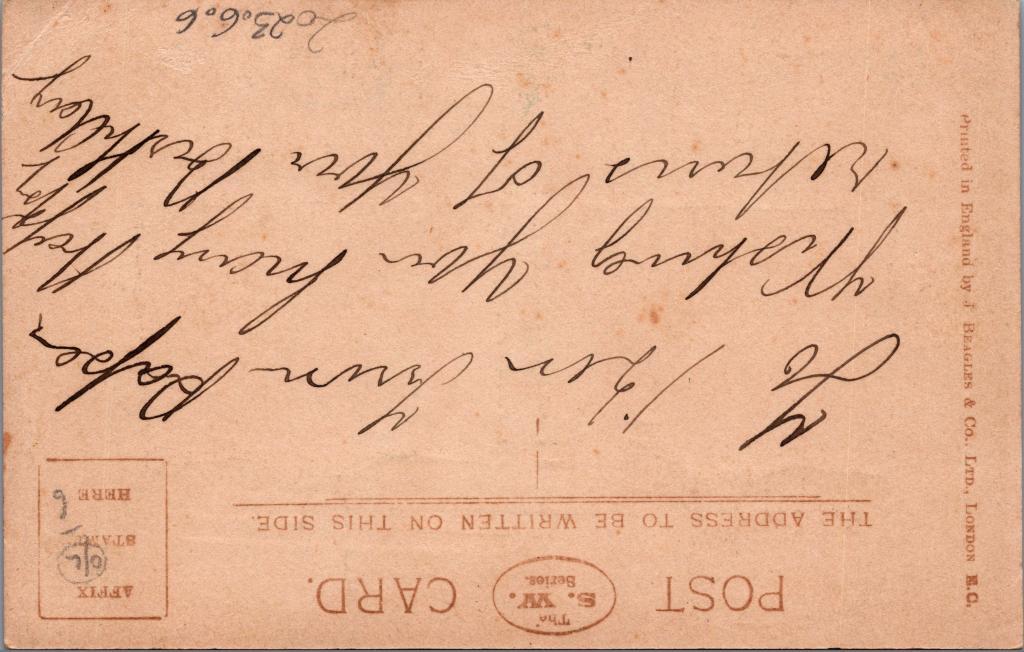 POST CARD.
The
S. W.
Series.
AFFIX
STAMP
HERE
THE ADDRESS TO BE WRITTEN ON THIS SIDE.
To from
Wishing you many Happy
returns of your Birthday
Printed in England by J Beagles & Co., Ltd., London E.C.